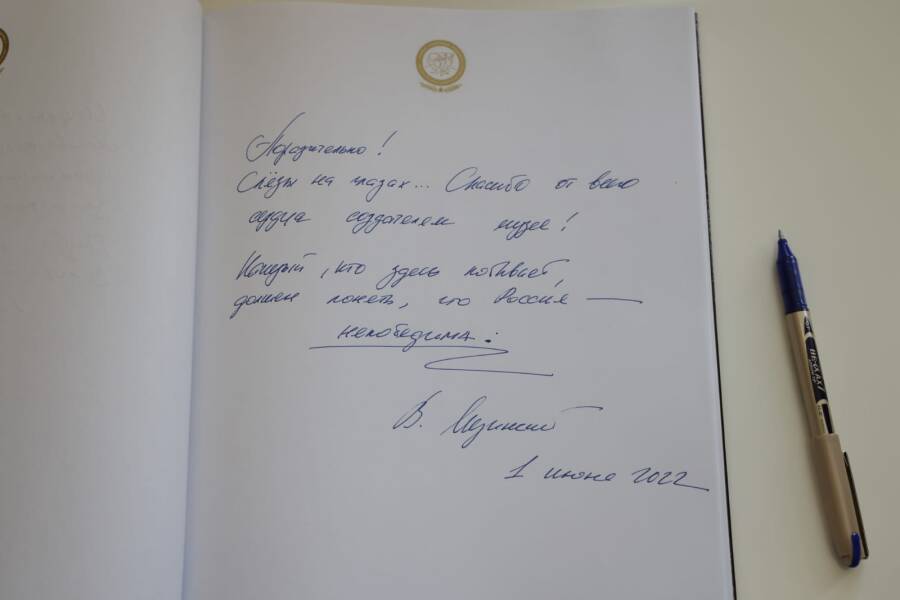 Поразительно!
Слёзы на глазах... Спасибо от всего
сердца создателям музея!
Каждый, кто здесь побывает,
должен понять, что Россия —
непобедима!
В.
1 июня 2022